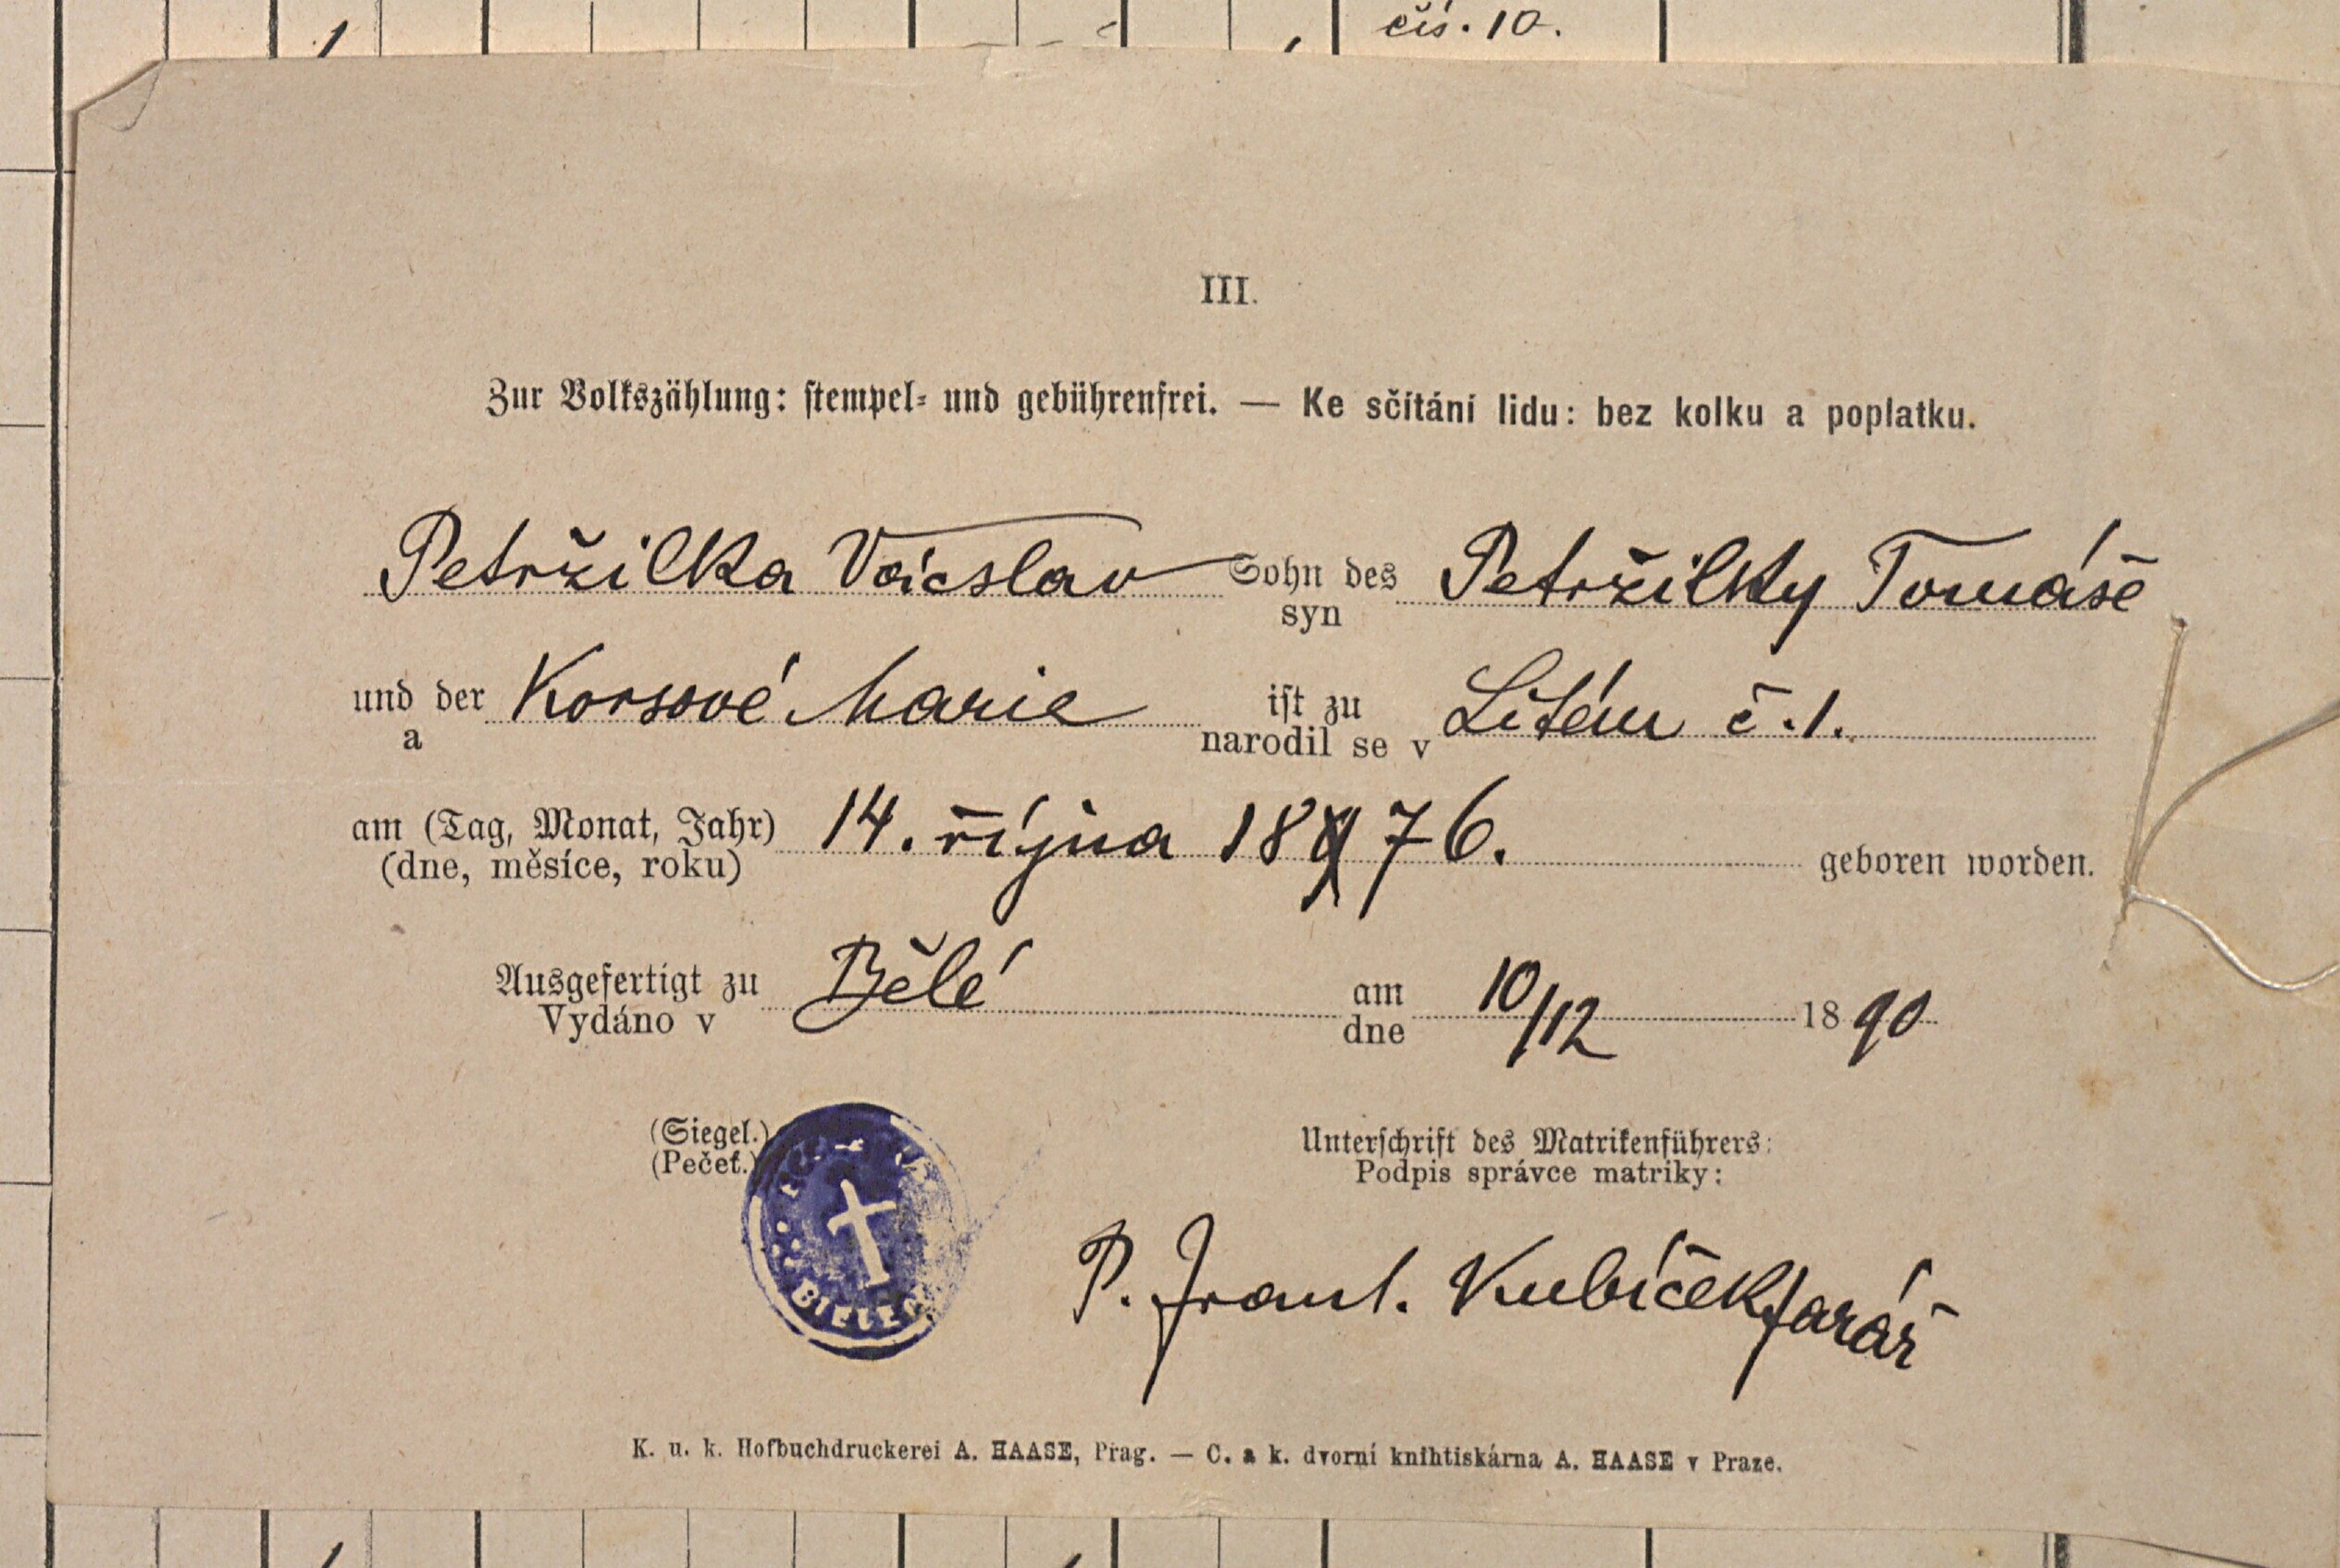 čís. 10.
III.
Zur Volkszählung: stempel- und gebührenfrei. — Ke sčítání lidu: bez kolku a poplatku.
Petržilka Václav Sohn des Petržilky Tomáše
syn
und der Korsové Marie ist zu Litéu č. 1.
a narodil se v
am (Tag, Monat, Jahr) 14. října 1876. geboren worden.
(dne, měsíce, roku)
Ausgefertigt zu Bělé am 10/12 1890
Vydáno v dne
(Siegel.) Unterschrift des Matrikenführers:
(Pečeť.) Podpis správce matriky:
P. Frant. Kubíček farář
K. u. k. Hofbuchdruckerei A. HAASE, Prag. — C. a k. dvorní knihtiskárna A. HAASE v Praze.